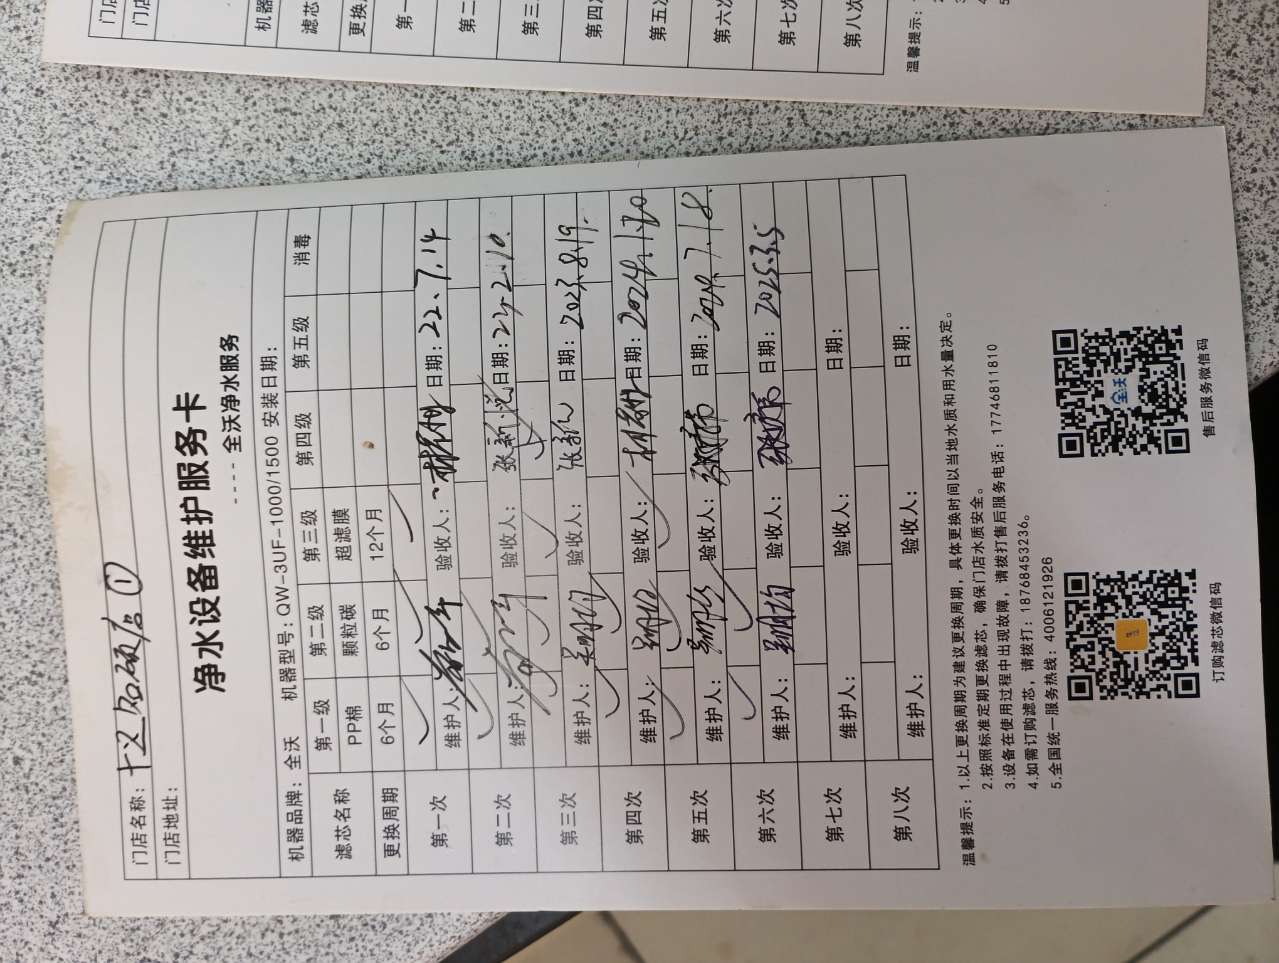 门店名称：
门店地址：
净水设备维护服务卡
---- 全沃净水服务
机器品牌：全沃 机器型号：QW-3UF-1000/1500 安装日期：
滤芯名称 第一级 第二级 第三级 第四级 第五级 消毒
PP棉 颗粒碳 超滤膜
更换周期 6个月 6个月 12个月
第一次
维护人： 验收人： 日期：22.7.14
第二次
维护人： 验收人： 张新元 日期：
第三次
维护人： 验收人：张新元 日期：2023.8.19.
第四次
维护人： 验收人： 日期：2024.1.20
第五次
维护人： 验收人： 日期：2024.7.18.
第六次
维护人： 验收人： 日期：2025.3.5
第七次
维护人： 验收人： 日期：
第八次
维护人： 验收人： 日期：
温馨提示：1.以上更换周期为建议更换周期，具体更换时间以当地水质和用水量决定。
2.按照标准定期更换滤芯，确保门店水质安全。
3.设备在使用过程中出现故障，请拨打售后服务电话：17746811810
4.如需订购滤芯，请拨打：18768453236。
5.全国统一服务热线：4006121926
全沃
订购滤芯微信码
售后服务微信码
门店
门店
机器
滤芯
更换
第一
第二
第三
第四
第五
第六
第七
第八次
温馨提示：